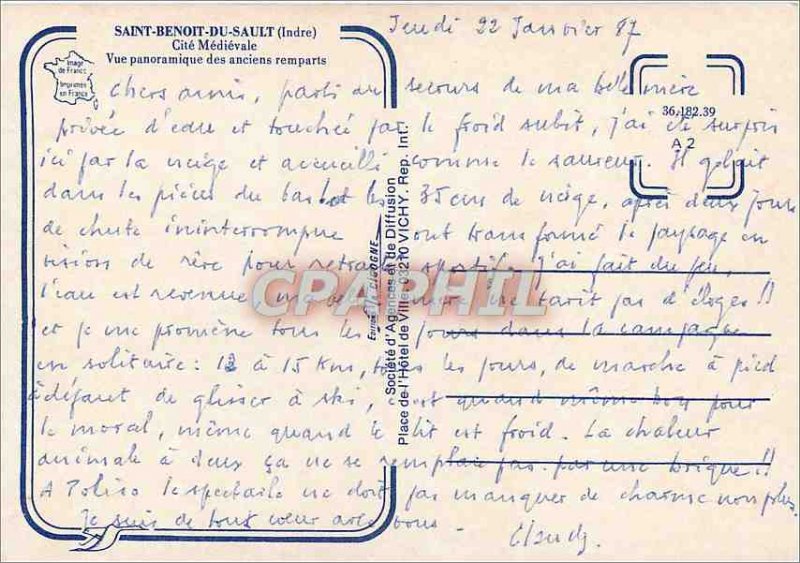 SAINT-BENOIT-DU-SAULT (Indre)
Cité Médiévale
Vue panoramique des anciens remparts
Image de France
Imprimée en France
Jeudi 22 Janvier 87
36.182.39
A 2
Chers amis, parti au secours de ma belle mère
privée d'eau et touchée par le froid subit, j'ai été surpris
ici par la neige et accueilli comme le sauveur. Il gelait
dans les pièces du bas et les 35 cm de neige, après deux jours
de chute ininterrompue ont transformé le paysage en
vision de rêve pour retraité sportif. J'ai fait du feu,
l'eau est revenue, ma belle mère ne tarit pas d'éloges !!
et je me promène tous les jours dans la campagne
en solitaire : 12 à 15 Km, tous les jours, de marche à pied
à défaut de glisser à ski, c'est quand même bon pour
le moral, même quand le lit est froid. La chaleur
animale à deux ça ne se remplace pas par une brique !!
A le spectacle ne doit pas manquer de charme non plus.
Je suis de tout cœur avec vous.
Editions la CIGOGNE
Société d'Agences et de Diffusion
Place de l'Hôtel de Ville 03210 VICHY. Rep. Int.
CPAPHIL